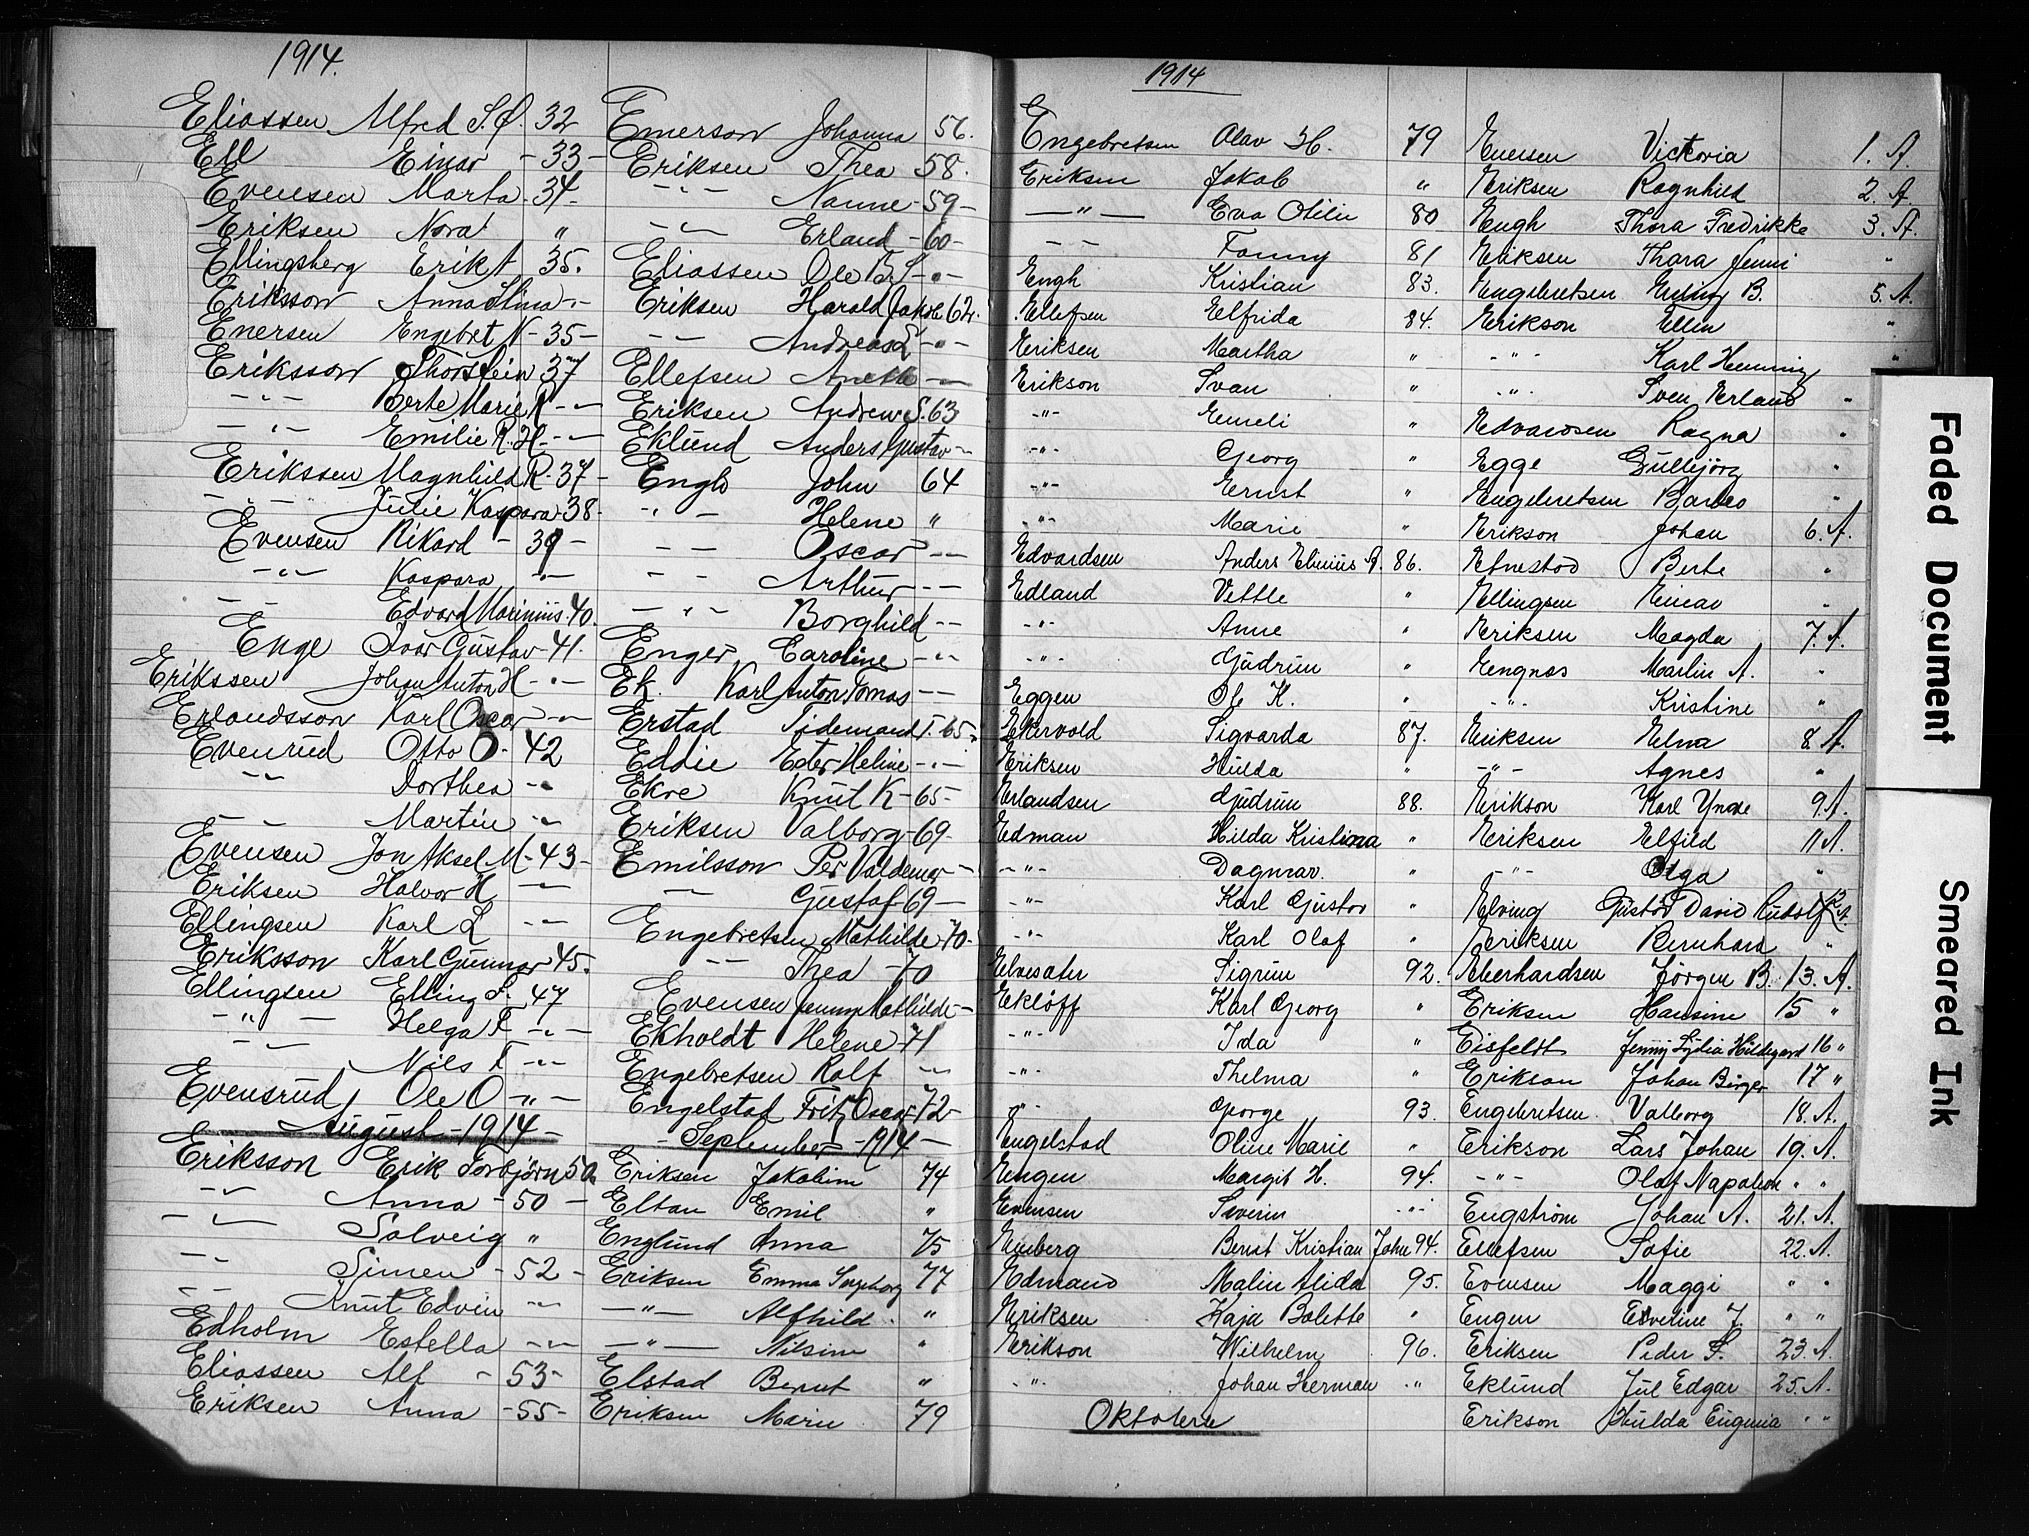 1914.
Eliassen Alfred S.O. 32
Ell Einar - 33 -
Evensen Marta - 34 -
Eriksen Nora "
Ellingsberg Erik A 35.
Eriksson Anna Stina - " -
Enersen Engebret N - 35 -
Eriksson Thorstein 37
- " - Berte Marie R - " -
- " - Emilie R. H. - " -
Erikssen Magnhild R. 37 -
- " - Julie Kaspara - 38 -
Evensen Rikard - 39 -
- " - Kaspara - " -
- " - Edvard Marinius - 40.
Enge Ivar Gustav - 41.
Erikssen Johan Anton H - " -
Erlandsson Karl Oscar - " -
Evenrud Otto O - 42
- " - Dorthea - " -
- " - Martin - " -
Evensen Jon Aksel M - 43 -
Eriksen Halvor H - " -
Ellingsen Karl L - " -
Eriksson Karl Gunnar 45.
Ellingsen Elling F. 47
- " - Helga F - " -
- " - Nils F - " -
Evensrud Ole O - " -
August - 1914 -
Eriksson Erik Torbjörn 50.
- " - Anna - 50 -
- " - Solveig "
- " - Simen - 52 -
- " - Knut Edvin - " -
Edholm Estella - " -
Eliassen Alf - 53 -
Eriksen Anna - 55 -
Emerson Johanna 56.
Eriksen Thea 58.
- " - Nanne - 59 -
- " - Erland - 60 -
Eliassen Ole B. S - " -
Eriksen Harald Jakob 62.
- " - Andreas L - " -
Ellefsen Anette - " -
Eriksen Andrew S. 63
Eklund Anders Gustav - " -
Engh John 64
- " - Helene "
- " - Oscar - " -
- " - Arthur - " -
- " - Borghild - " -
Enger Caroline - " -
Ek. Karl Anton Tomas - " -
Erstad Tidemand T. 65.
Eddie Ester Heline - " -
Ekre Knut K - 65 -
Eriksen Valborg - 69 -
Emilsson Per Valdemar -
- " - Gustaf 69 -
Engebretsen Mathilde - 70 -
- " - Thea - 70
Evensen Jenny Mathilde -
Ekholdt Helene - 71
Engebretsen Rolf - " -
Engelstad Fritz Oscar 72 -
- September - 1914 -
Eriksen Jakobine 74
Eltan Emil "
Englund Anna 75
Eriksen Emma Ingeborg 77
- " - Alfhild "
- " - Nilsine "
Elstad Bernt "
Eriksen Marie 79
1914
Engebretsen Olav H. 79
Eriksen Jakob "
- " - Eva Otilie 80
- " - Fanny 81
Engh Kristian 83.
Ellefsen Elfrida 84.
Eriksen Martha "
Erikson Svan "
- " - Emeli "
- " - Georg "
- " - Ernst "
- " - Marie "
Edvardsen Anders Elinius A. 86.
Edland Vettle "
- " - Anne "
- " - Gudrun "
Eggen Ole K. "
Ekervold Sigvarda 87.
Eriksen Hulda "
Erlandsen Gudrun 88.
Edman Hilda Kristina "
- " - Dagmar. "
- " - Karl Gustav "
- " - Karl Olaf "
Elvesater Sigrun 92.
Eklöff Karl Georg "
- " - Ida "
- " - Thelma "
- " - George 93.
Engelstad Oline Marie "
Engen Margit H. 94.
Evensen Severin - " -
Enberg Bernt Kristian John 94.
Edmand Malin Alida 95.
Eriksen Kaja Bolette "
Erikson Wilhelm 96.
- " - Johan Herman "
Oktober
Evensen Victoria 1. A.
Eriksen Ragnhild 2. A
Engh Thora Fredrikke 3. A.
Eriksen Thora Jenni "
Engebretsen Erling B. 5. A.
Erikson Ellin "
- " - Karl Henning "
- " - Sven Erland "
Edvardsen Ragna "
Egge Gulbjörg "
Engebretsen Barbro "
Erikson Johan 6. A.
Efnestad Berte "
Ellingsen Einar "
Eriksen Magda 7. A.
Engnas Marlin A. "
- " - Kristine "
Eriksen Elna 8 A.
- " - Agnes "
Erikson Karl Yngve 9. A.
Eriksen Elfild 11 A.
- " - Olga "
Elving Gustav David Rudolf 12 A.
Eriksen Bernhard "
Eberhardsen Jörgen B. 13. A.
Eriksen Hansine 15 "
Eisfeldt Jenny Lydia Hildegard 16 "
Erikson Johan Birger 17 "
Engebretsen Valborg 18. A.
Erikson Lars Johan 19. A.
- " - Olaf Napoleon " "
Engström Johan A. 21. A.
Ellefsen Sofie 22. A.
Evensen Maggi " "
Engen Eveline J. " "
Eriksen Peder S. 23. A.
Eklund Jul Edgar 25. A.
Erikson Hulda Eugenia " "
Faded Document
Smeared Ink